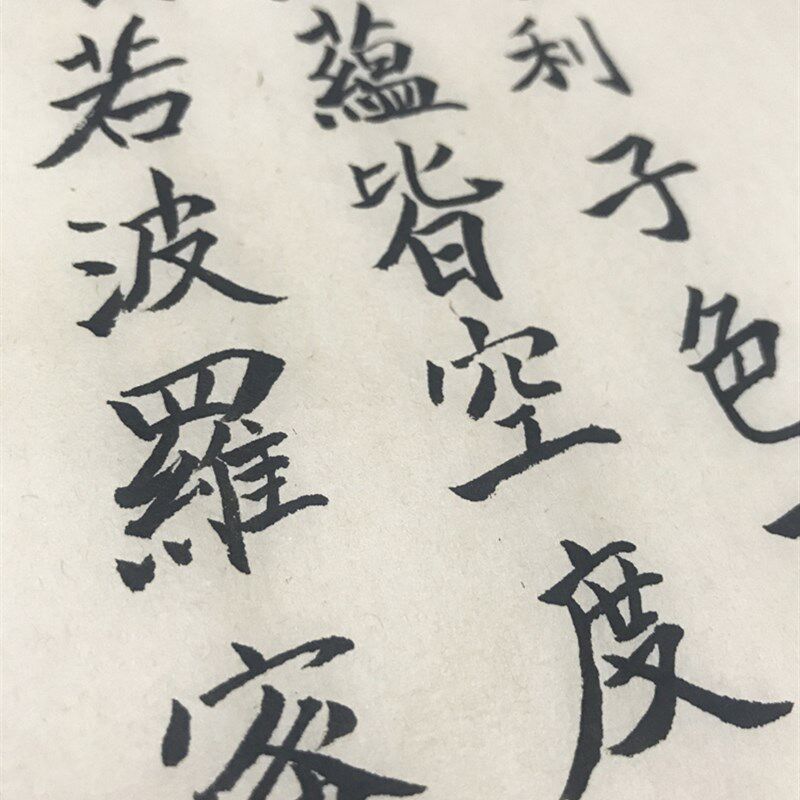 若波羅
蘊皆空度
利子色